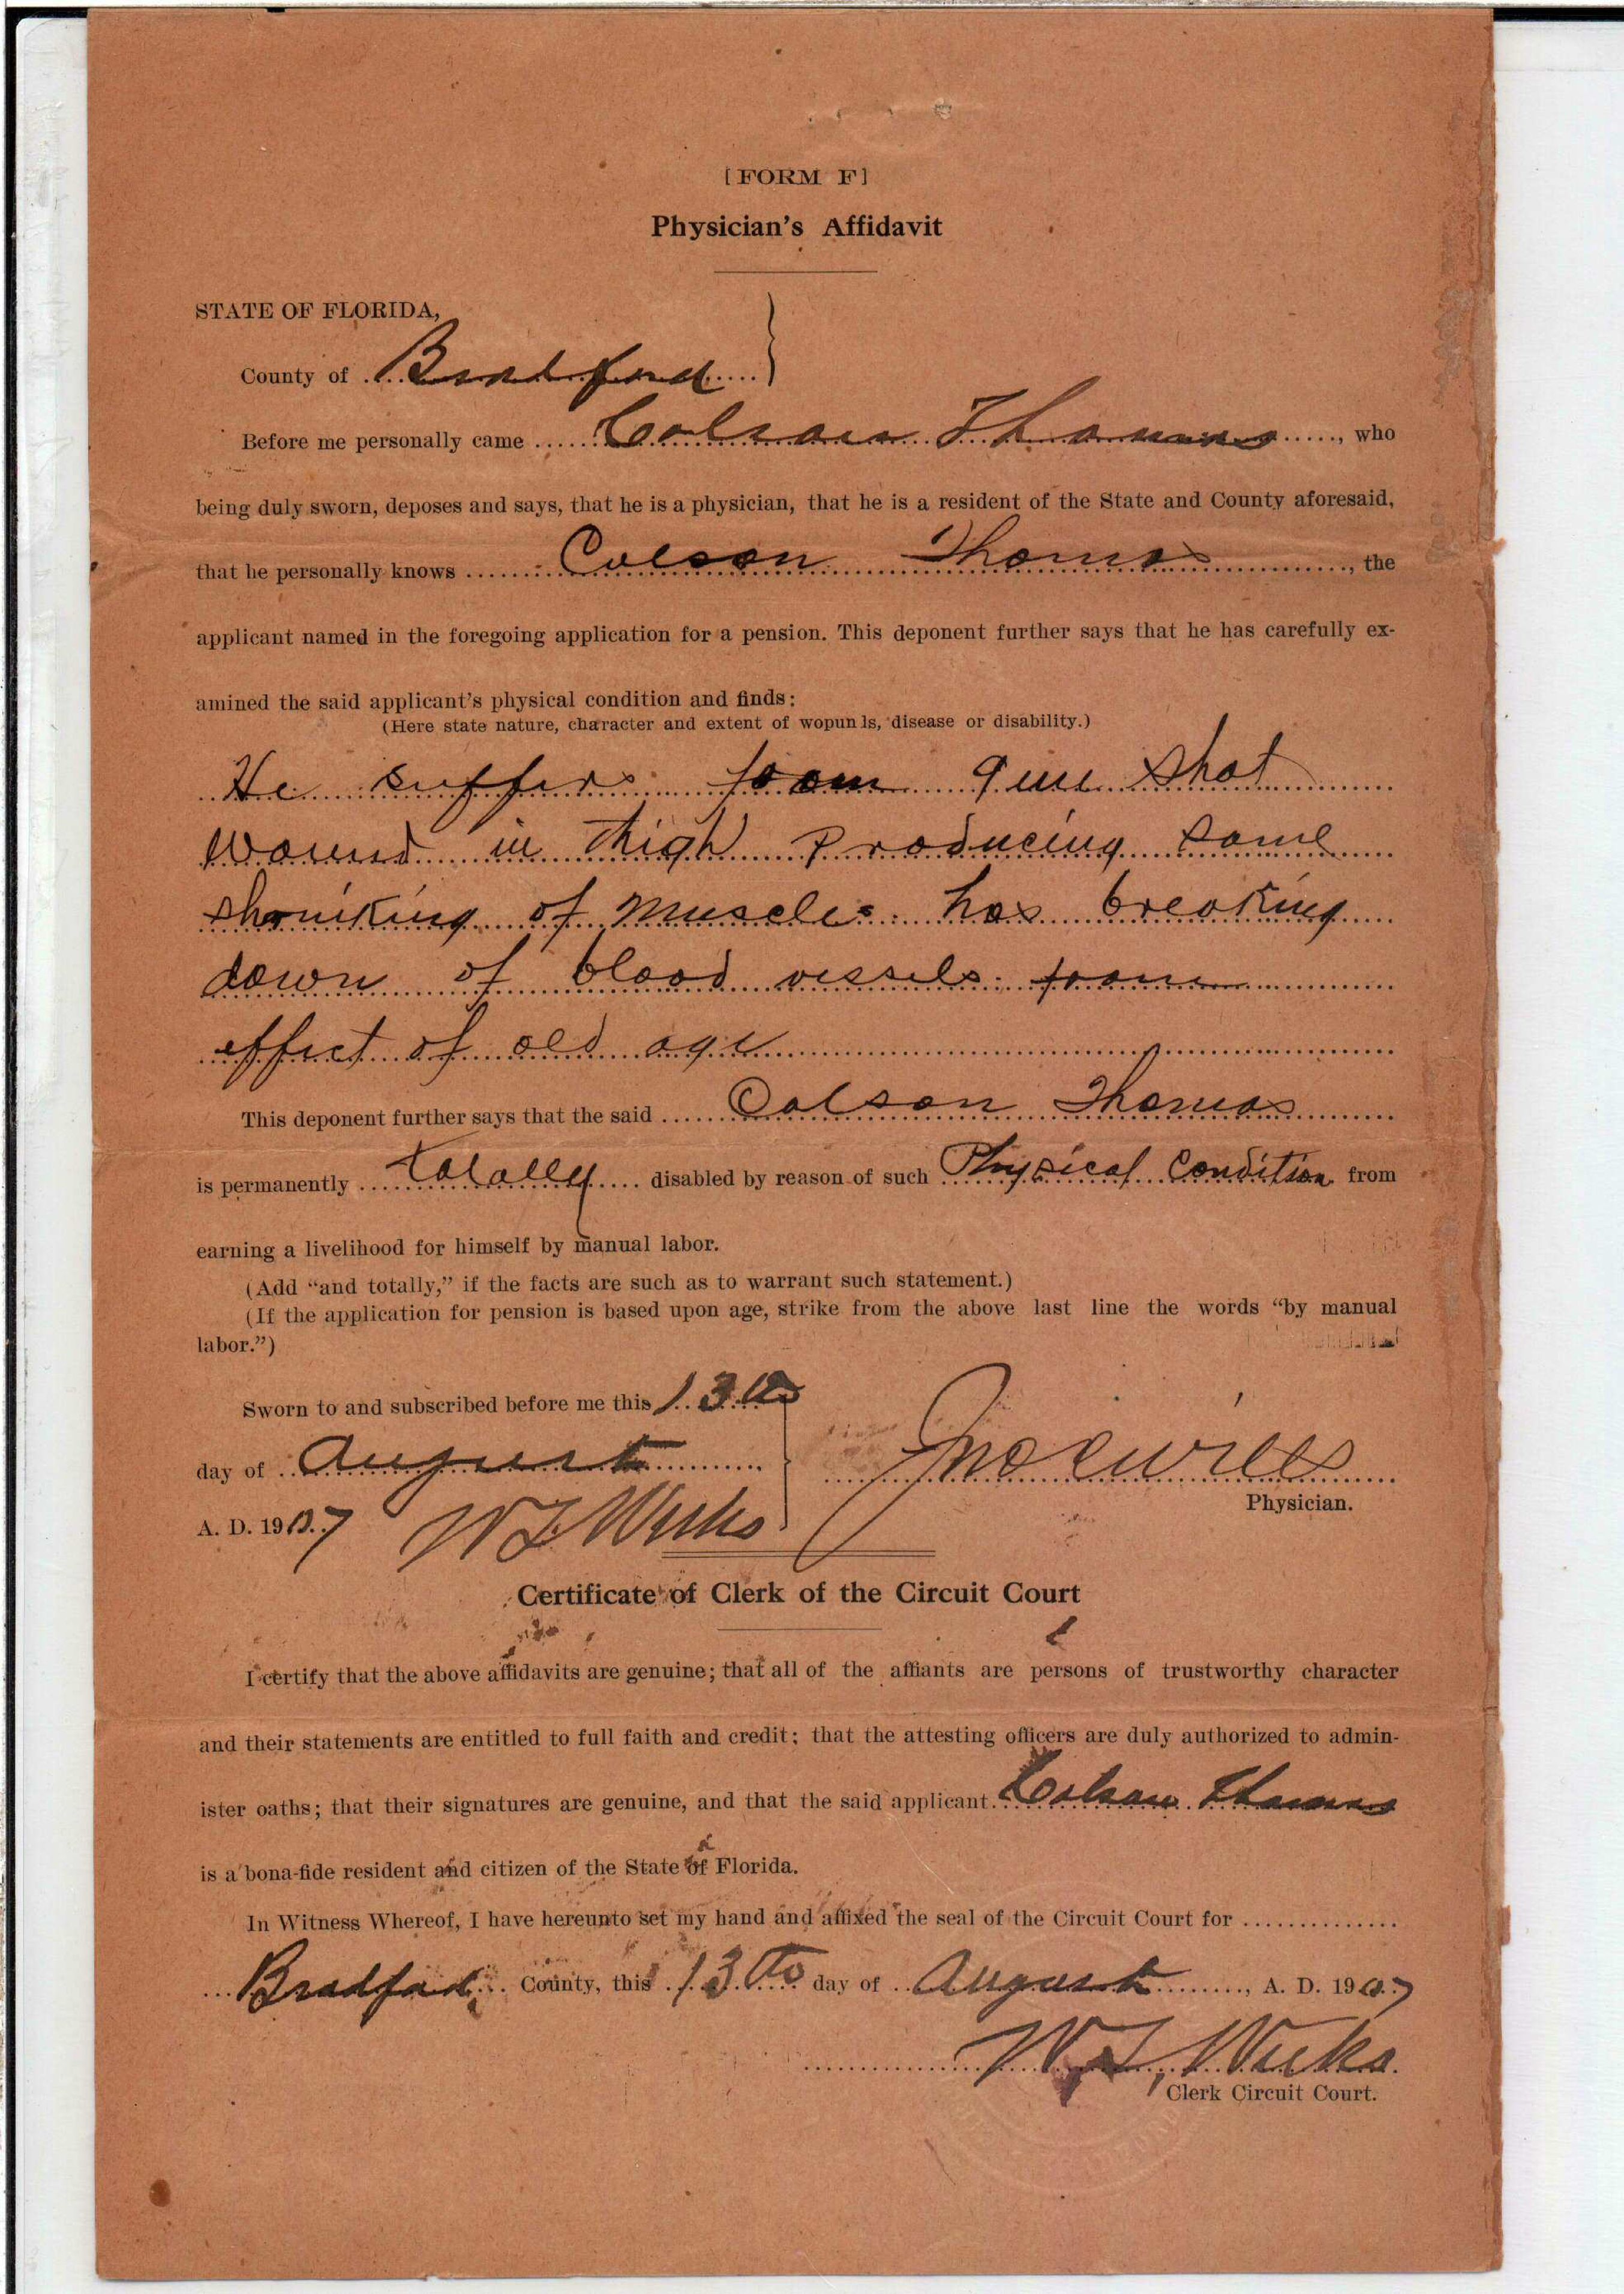 [FORM F]
Physician's Affidavit
STATE OF FLORIDA,
County of Bradford
Before me personally came Colson Thomas, who
being duly sworn, deposes and says, that he is a physician, that he is a resident of the State and County aforesaid,
that he personally knows Colson Thomas, the
applicant named in the foregoing application for a pension. This deponent further says that he has carefully ex-
amined the said applicant's physical condition and finds:
(Here state nature, character and extent of wopun ls, disease or disability.)
He suffers from gun shot
wound in thigh producing some
shrinking of muscles has breaking
down of blood vessels from
effect of old age
This deponent further says that the said Colson Thomas
is permanently totally disabled by reason of such Physical Condition from
earning a livelihood for himself by manual labor.
(Add "and totally," if the facts are such as to warrant such statement.)
(If the application for pension is based upon age, strike from the above last line the words "by manual
labor.")
Sworn to and subscribed before me this 13th
day of August
Physician.
A. D. 1907 Weeks
Certificate of Clerk of the Circuit Court
I certify that the above affidavits are genuine; that all of the affiants are persons of trustworthy character
and their statements are entitled to full faith and credit; that the attesting officers are duly authorized to admin-
ister oaths; that their signatures are genuine, and that the said applicant Colson Thomas
is a bona-fide resident and citizen of the State of Florida.
In Witness Whereof, I have hereunto set my hand and affixed the seal of the Circuit Court for
Bradford County, this 13th day of August, A. D. 1907
Weeks
Clerk Circuit Court.